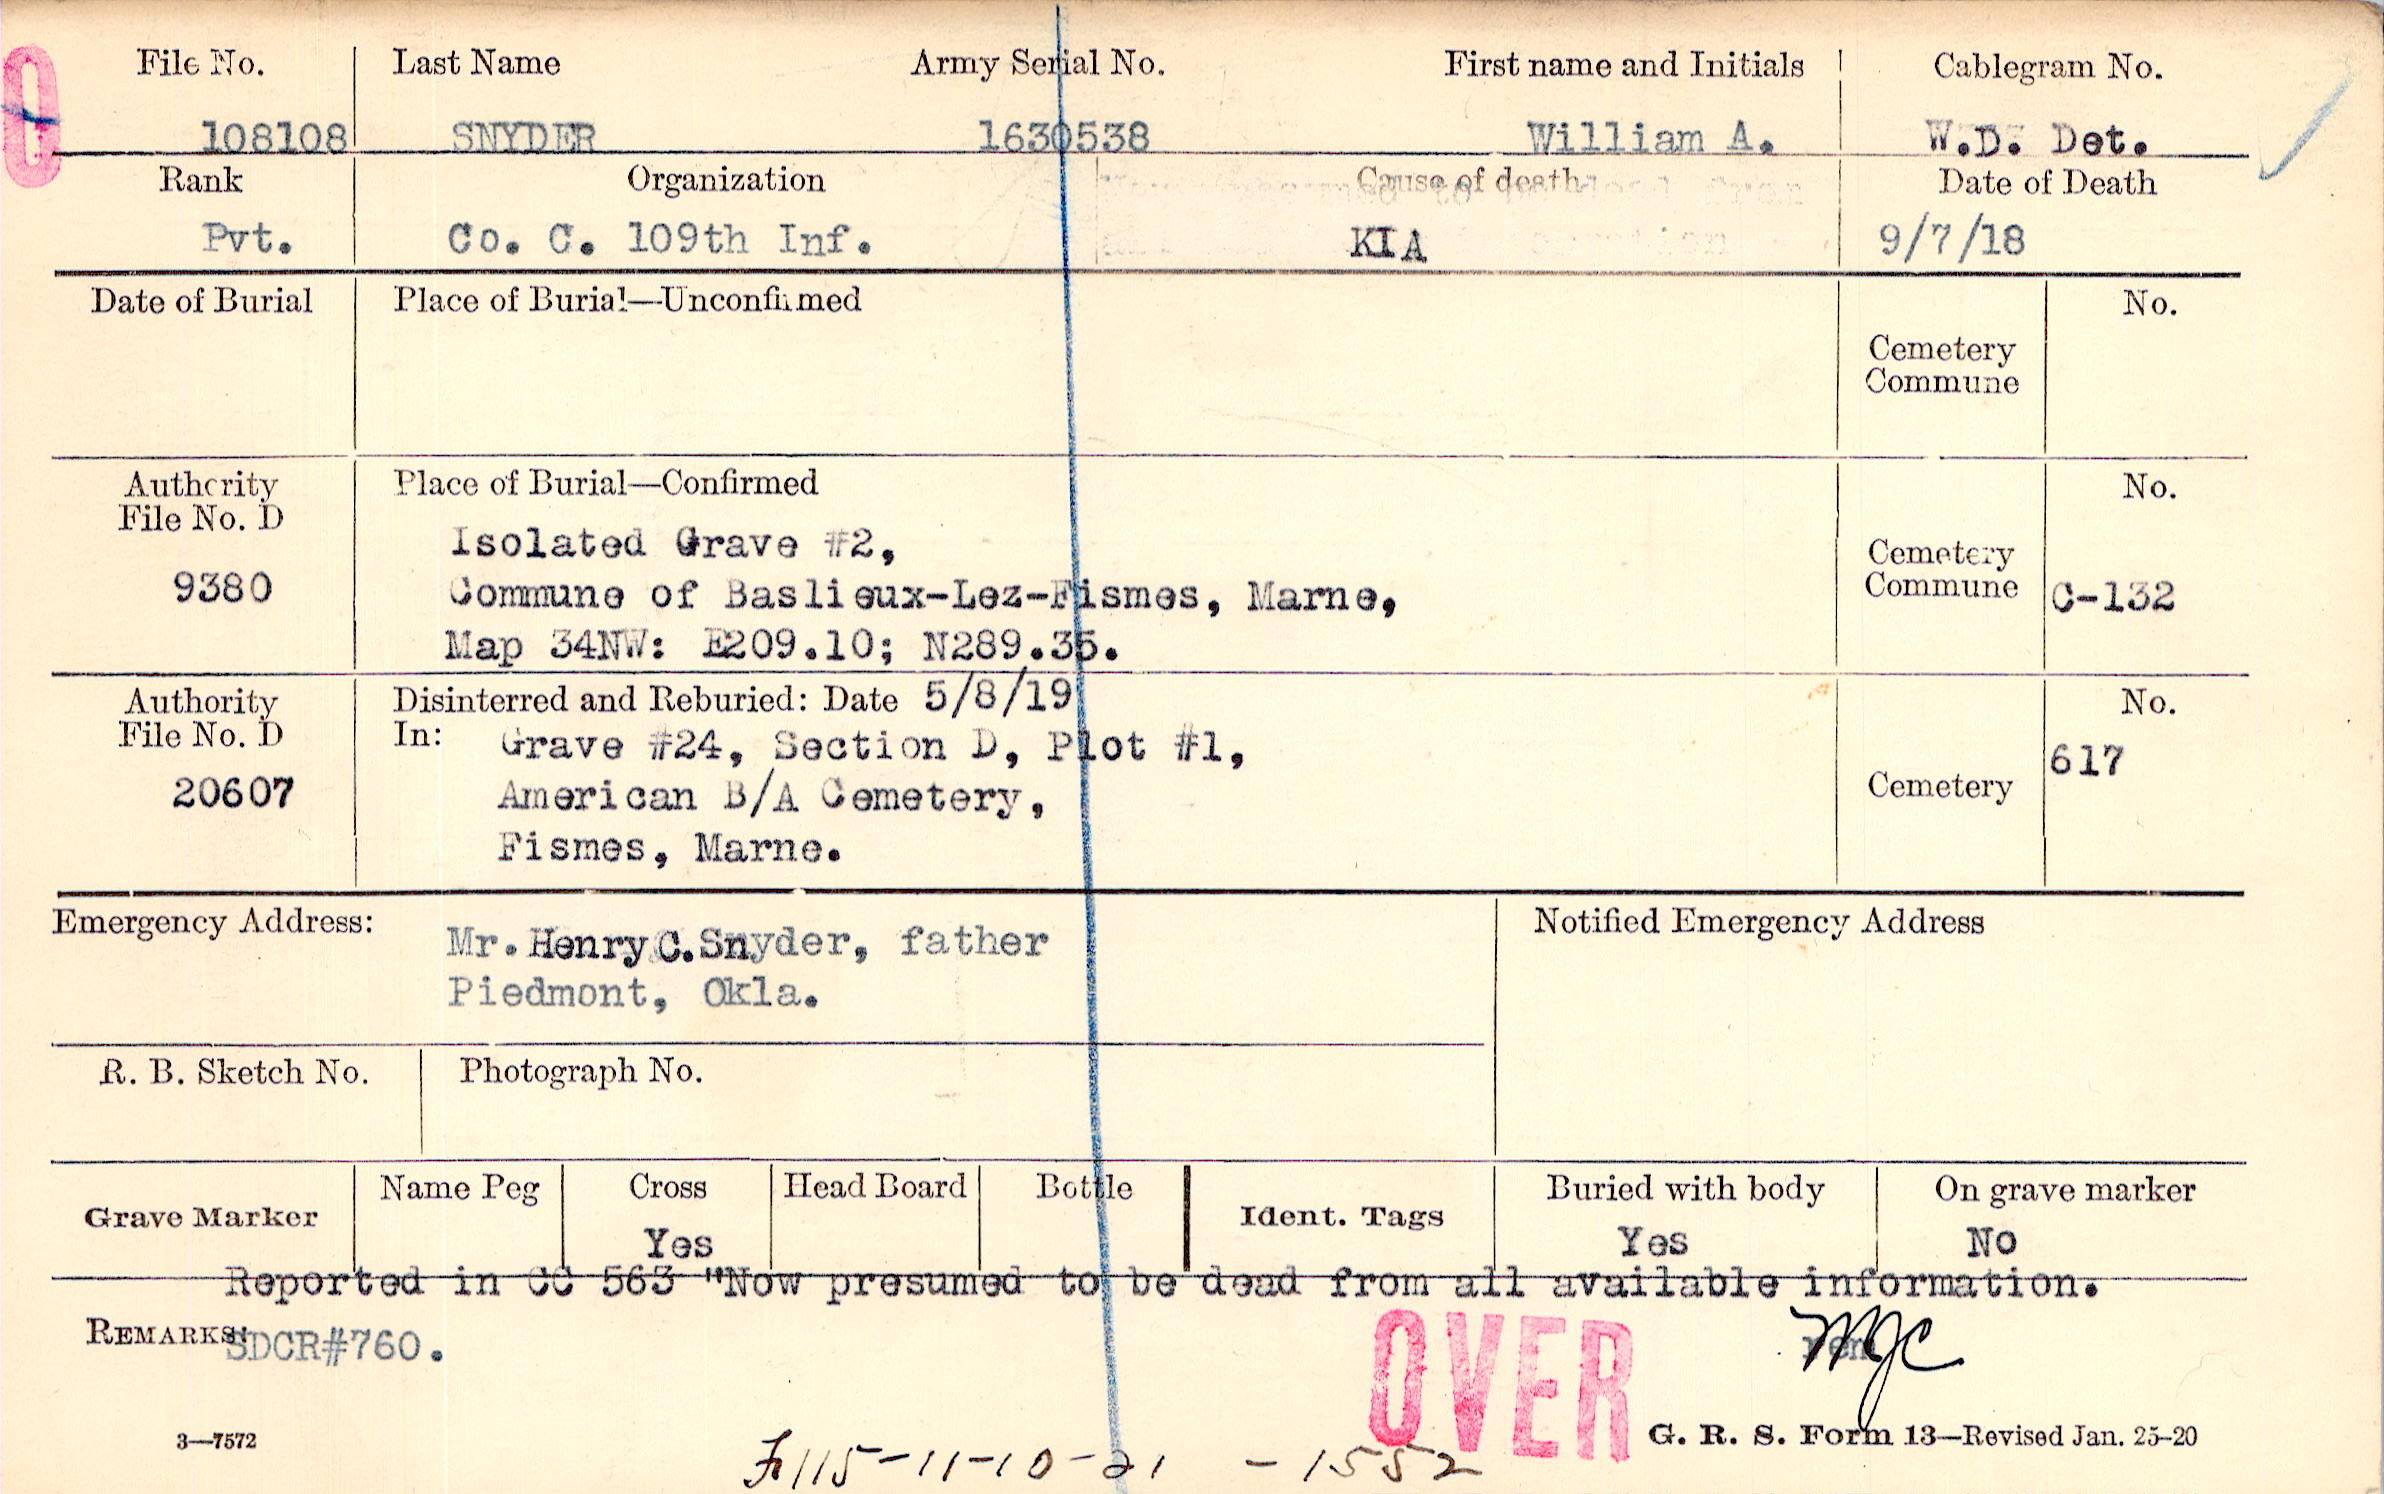 File No. Last Name Army Serial No. First name and Initials Cablegram No.
108108 SNYDER 1630538 William A. W.D. Det.
Rank Organization Cause of death Date of Death
Pvt. Co. C. 109th Inf. KIA 9/7/18
Date of Burial Place of Burial—Unconfirmed No.
Cemetery
Commune
Authority Place of Burial—Confirmed No.
File No. D
Isolated Grave #2,
9380 Commune of Baslieux-Lez-Fismes, Marne, Cemetery Commune C-132
Map 34NW: E209.10; N289.35.
Authority Disinterred and Reburied: Date 5/8/19 No.
File No. D In: Grave #24, Section D, Plot #1, 617
20607 American B/A Cemetery, Cemetery
Fismes, Marne.
Emergency Address: Mr. Henry C. Snyder, father Notified Emergency Address
Piedmont, Okla.
R. B. Sketch No. Photograph No.
Name Peg Cross Head Board Bottle Buried with body On grave marker
Grave Marker Yes Ident. Tags Yes No
Reported in CC 563 "Now presumed to be dead from all available information.
REMARKS: SDCR#760. MJC
OVER
3—7572 G. R. S. Form 13—Revised Jan. 25-20
115-11-10-21 - 1552